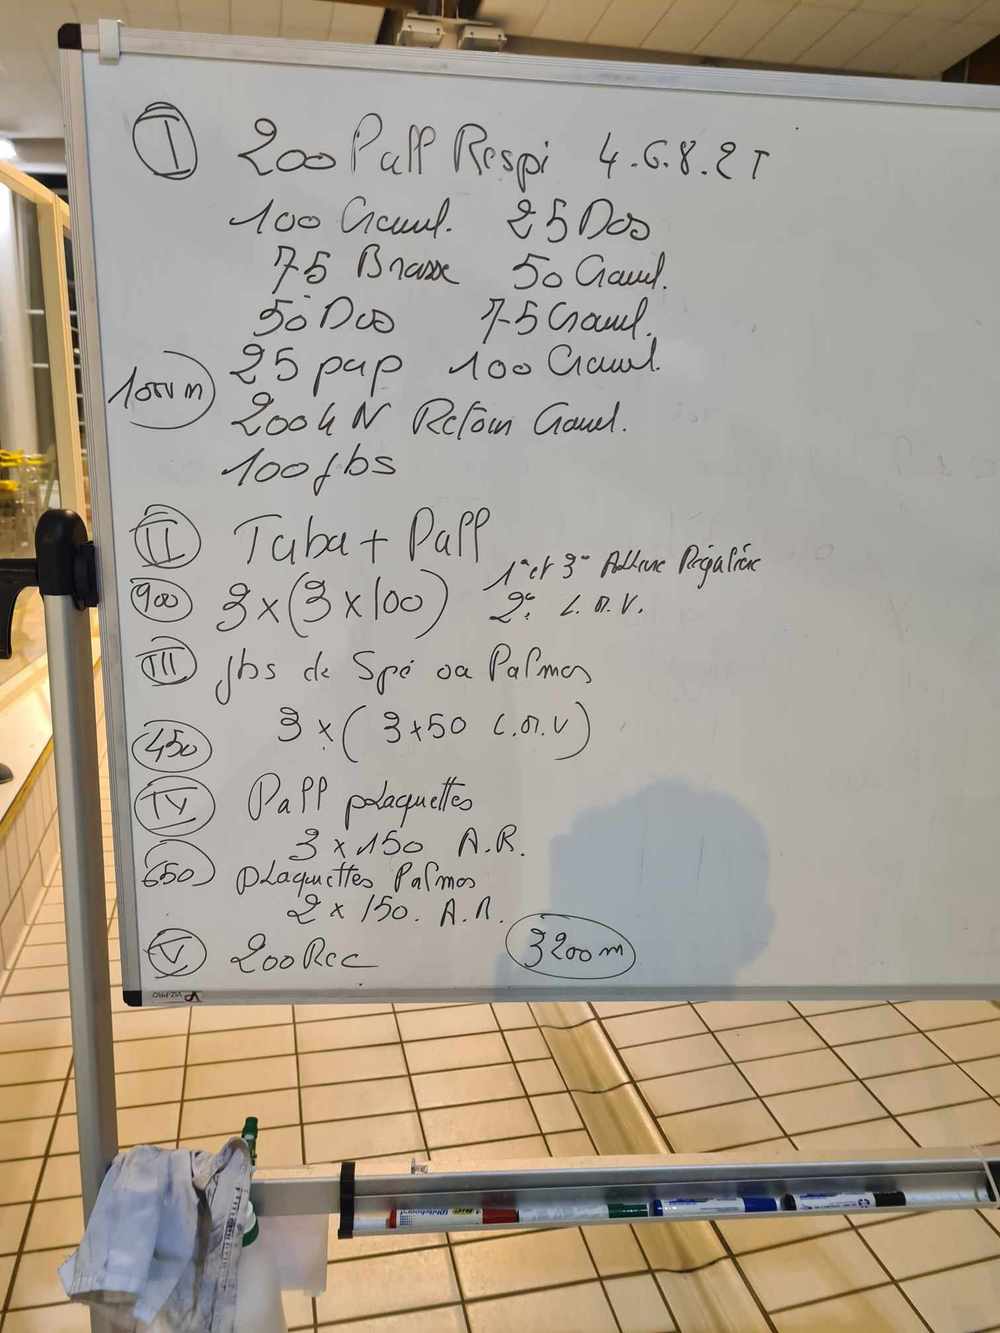 I 200 Pull Respi 4.6.8.2T
100 Crawl. 25 Dos
75 Brasse 50 Crawl.
50 Dos 75 Crawl.
25 pap 100 Crawl.
1000m
200 4N Retour Crawl.
100 jbs
II Tuba + Pull
1er et 3e Allure Régulière
900 3x(3x100) 2e L.M.V.
III jbs de Spé ou Palmes
3x(3x50 L.M.V)
450
IV Pull plaquettes
3 x 150 A.R.
650 plaquettes Palmes
2 x 150. A.R.
V 200 Rec 3200m